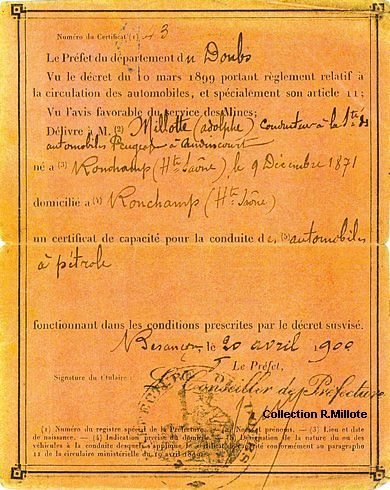 Numéro du Certificat (1) : 3
Le Préfet du département du Doubs
Vu le décret du 10 mars 1899 portant règlement relatif à
la circulation des automobiles, et spécialement son article 11 ;
Vu l'avis favorable du service des Mines ;
Délivre à M. (2) Millotte (adolphe) conducteur à la Sté des
automobiles Peugeot à audincourt
né à (3) Ronchamp (Hte Saône) le 9 Décembre 1871
domicilié à (4) Ronchamp (Hte Saône)
un certificat de capacité pour la conduite des (5) automobiles
à pétrole
fonctionnant dans les conditions prescrites par le décret susvisé.
Besançon, le 20 avril 1900
Le Préfet,
Signature du titulaire :
Conseiller de Préfecture
Collection R.Millote
(1) Numéro du registre spécial de la Préfecture. — (2) Nom et prénoms. — (3) Lieu et date
de naissance. — (4) Indication précise du domicile. — (5) Désignation de la nature du ou des
véhicules à la conduite desquels s'applique le certificat de capacité conformément au paragraphe
11 de la circulaire ministérielle du 10 avril 1899.